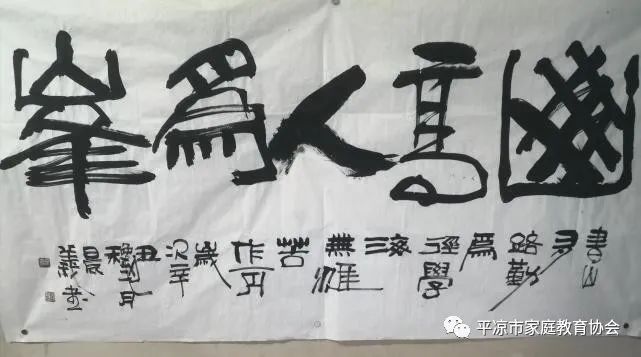 高人為峯
書山
有
路勤
為
徑學
海
無涯
苦
作舟
歲
次辛
丑
月
晨
義書
平凉市家庭教育协会